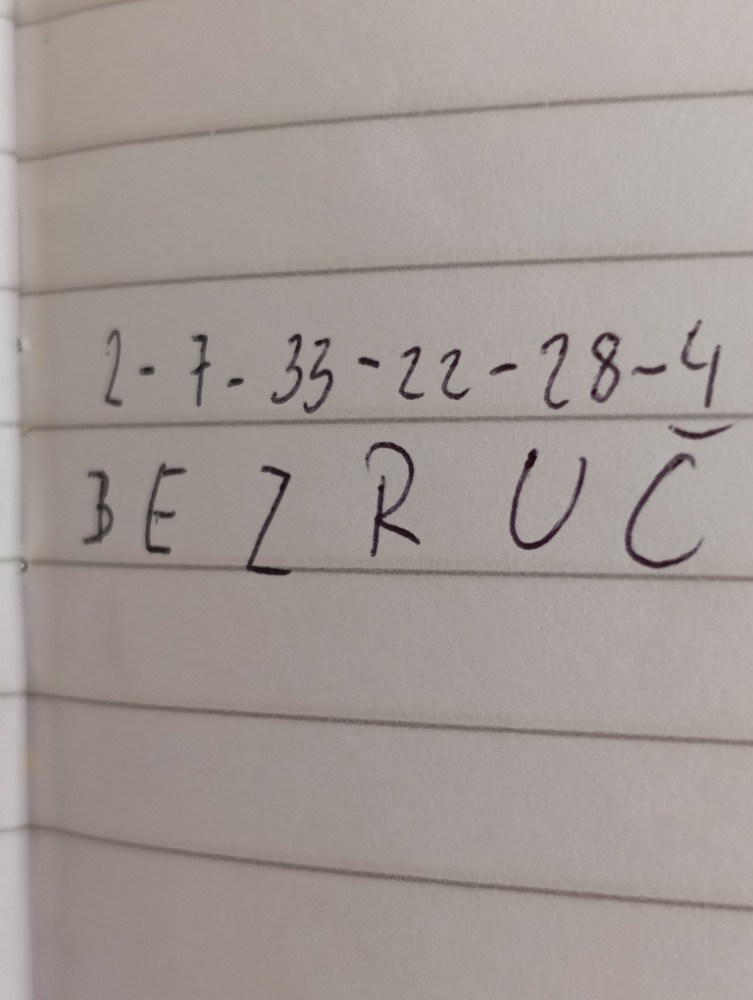 2-7-33-22-28-4
B E Z R U Č